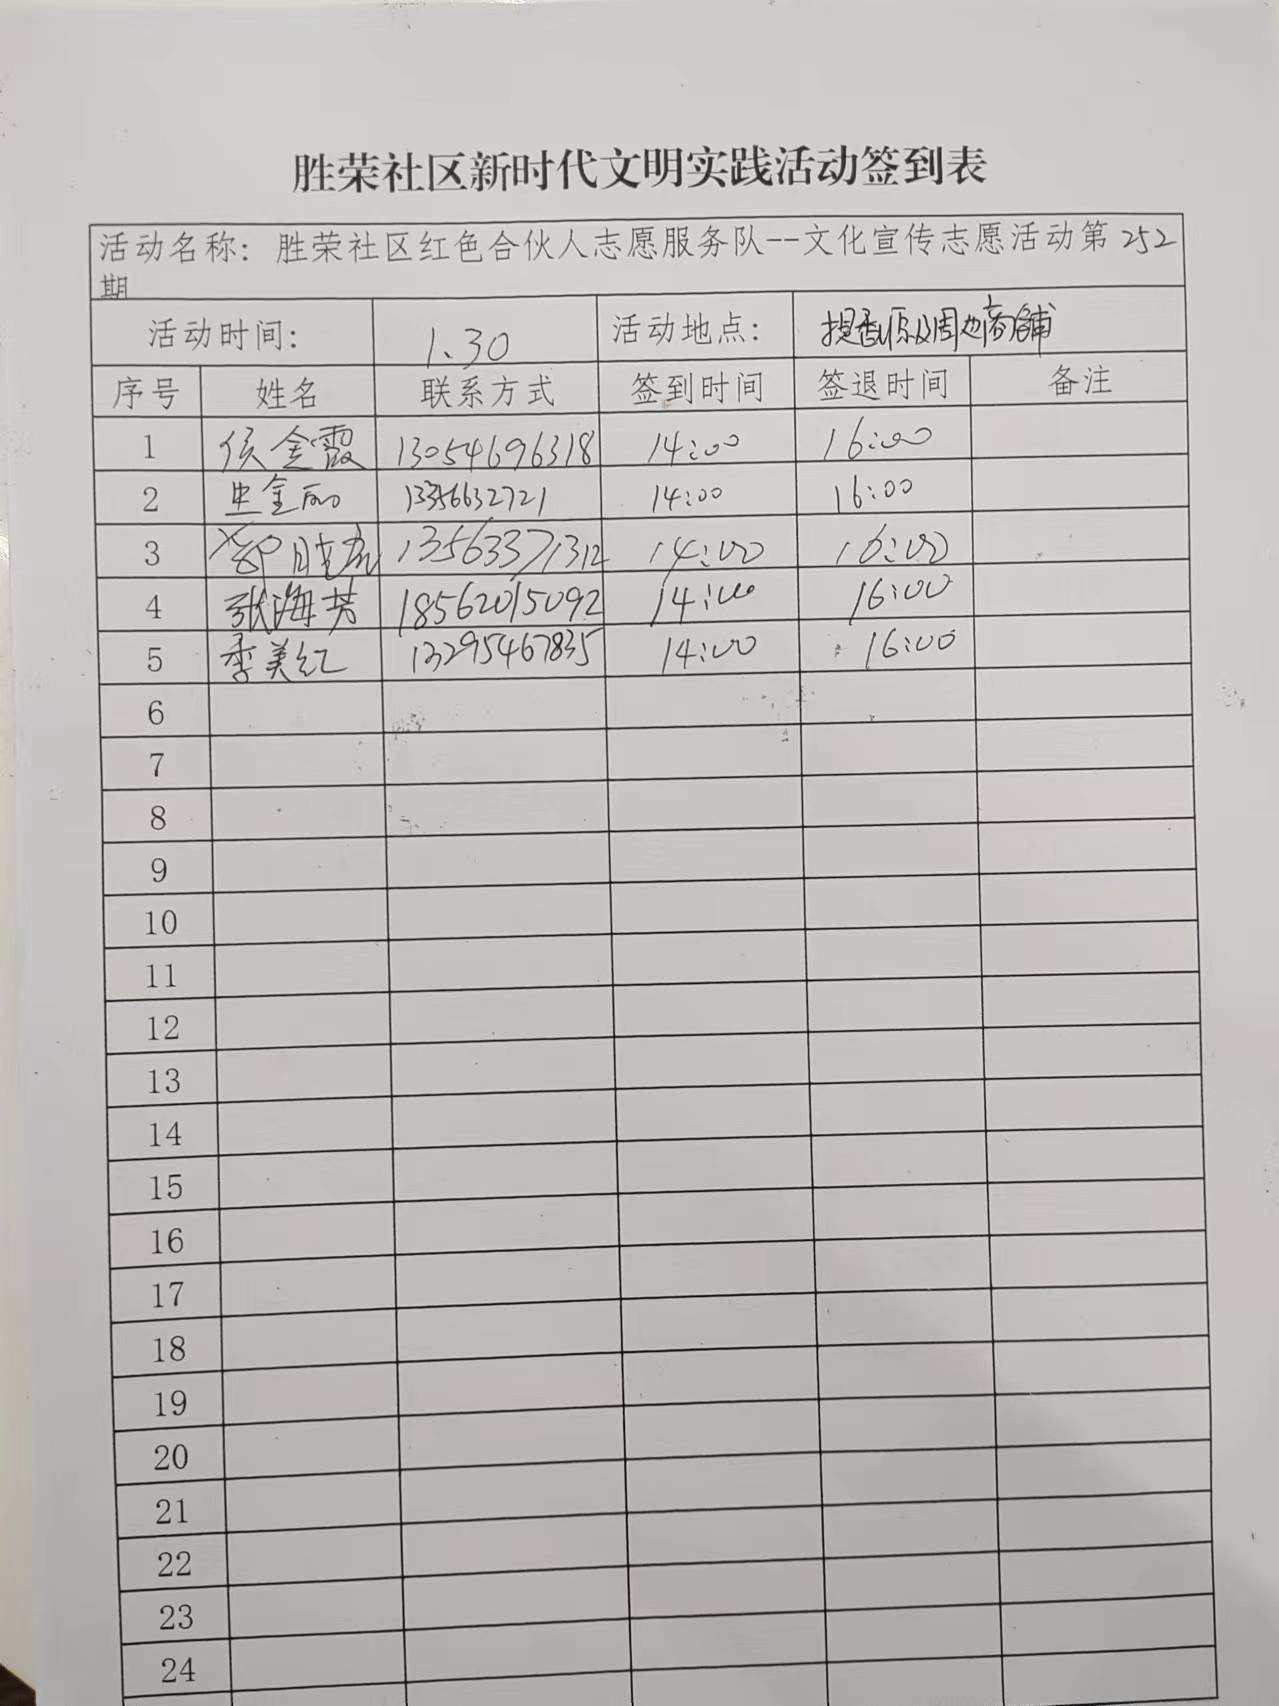 胜荣社区新时代文明实践活动签到表
活动名称：胜荣社区红色合伙人志愿服务队--文化宣传志愿活动第252
期
活动时间： 1.30 活动地点： 提香源及周边商铺
序号 姓名 联系方式 签到时间 签退时间 备注
1 侯金霞 13054696318 14:00 16:00
2 史金丽 13356632721 14:00 16:00
3 郑 13563371312 14:00 16:00
4 张海芳 18562015092 14:00 16:00
5 季美红 13295467835 14:00 16:00
6
7
8
9
10
11
12
13
14
15
16
17
18
19
20
21
22
23
24